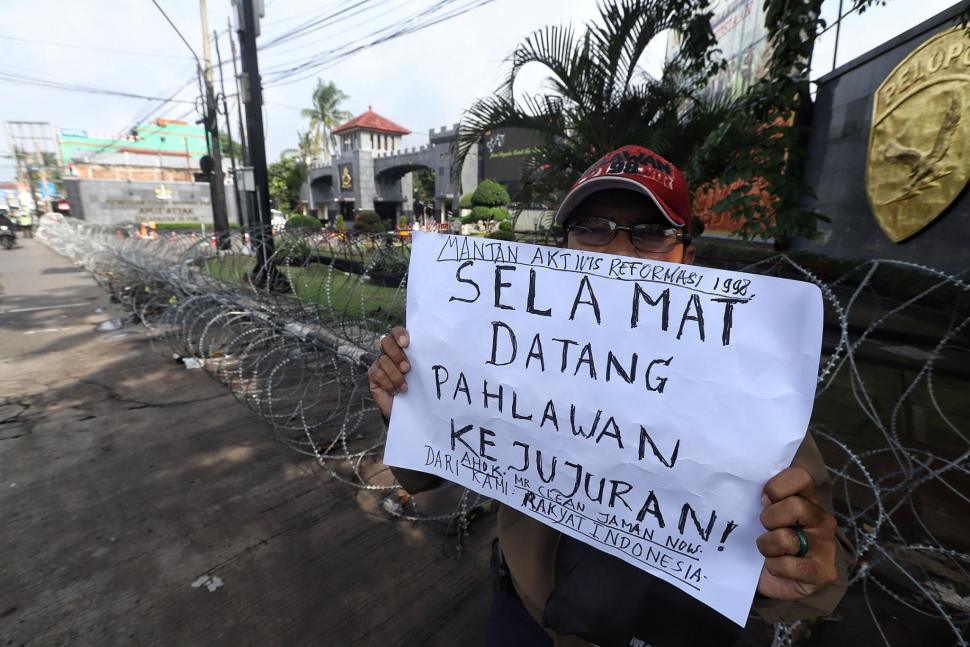 MANTAN AKTIVIS REFORMASI 1998
SELAMAT
DATANG
PAHLAWAN
KEJUJURAN!
AHOK. MR CLEAN JAMAN NOW.
DARI KAMI: RAKYAT INDONESIA.
PELOPOR
98